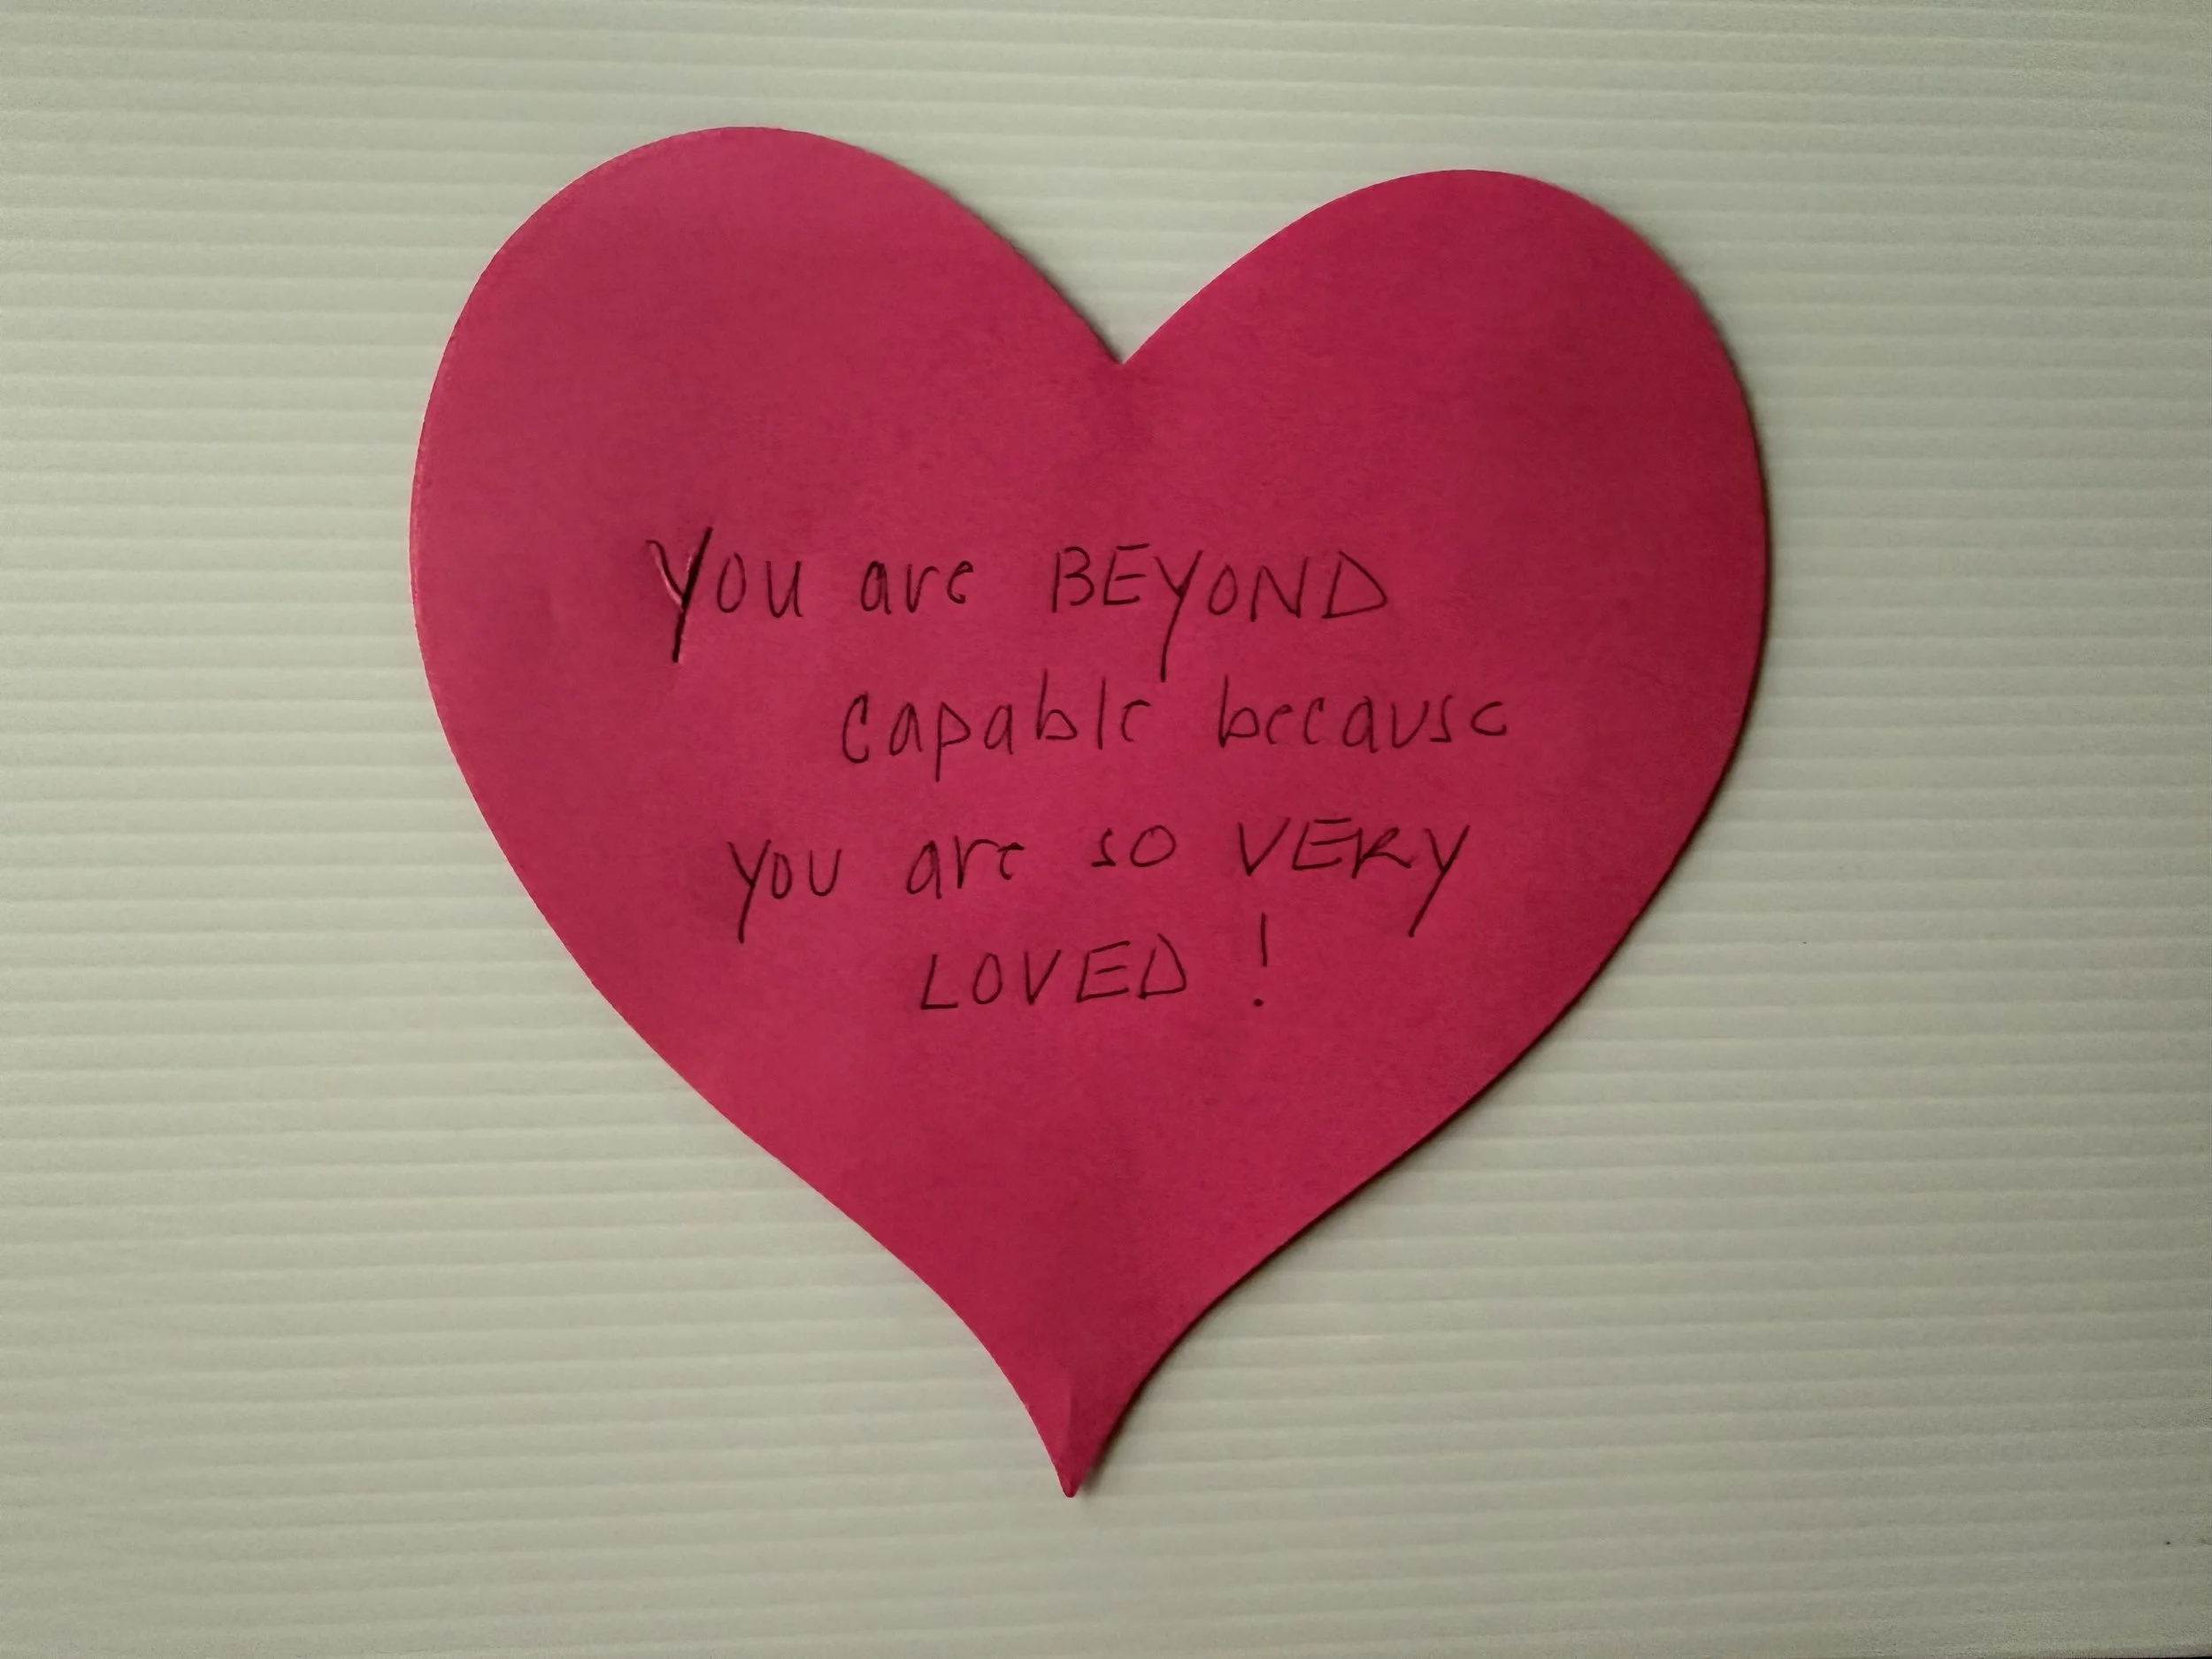 You are BEYOND
capable because
you are so VERY
LOVED !